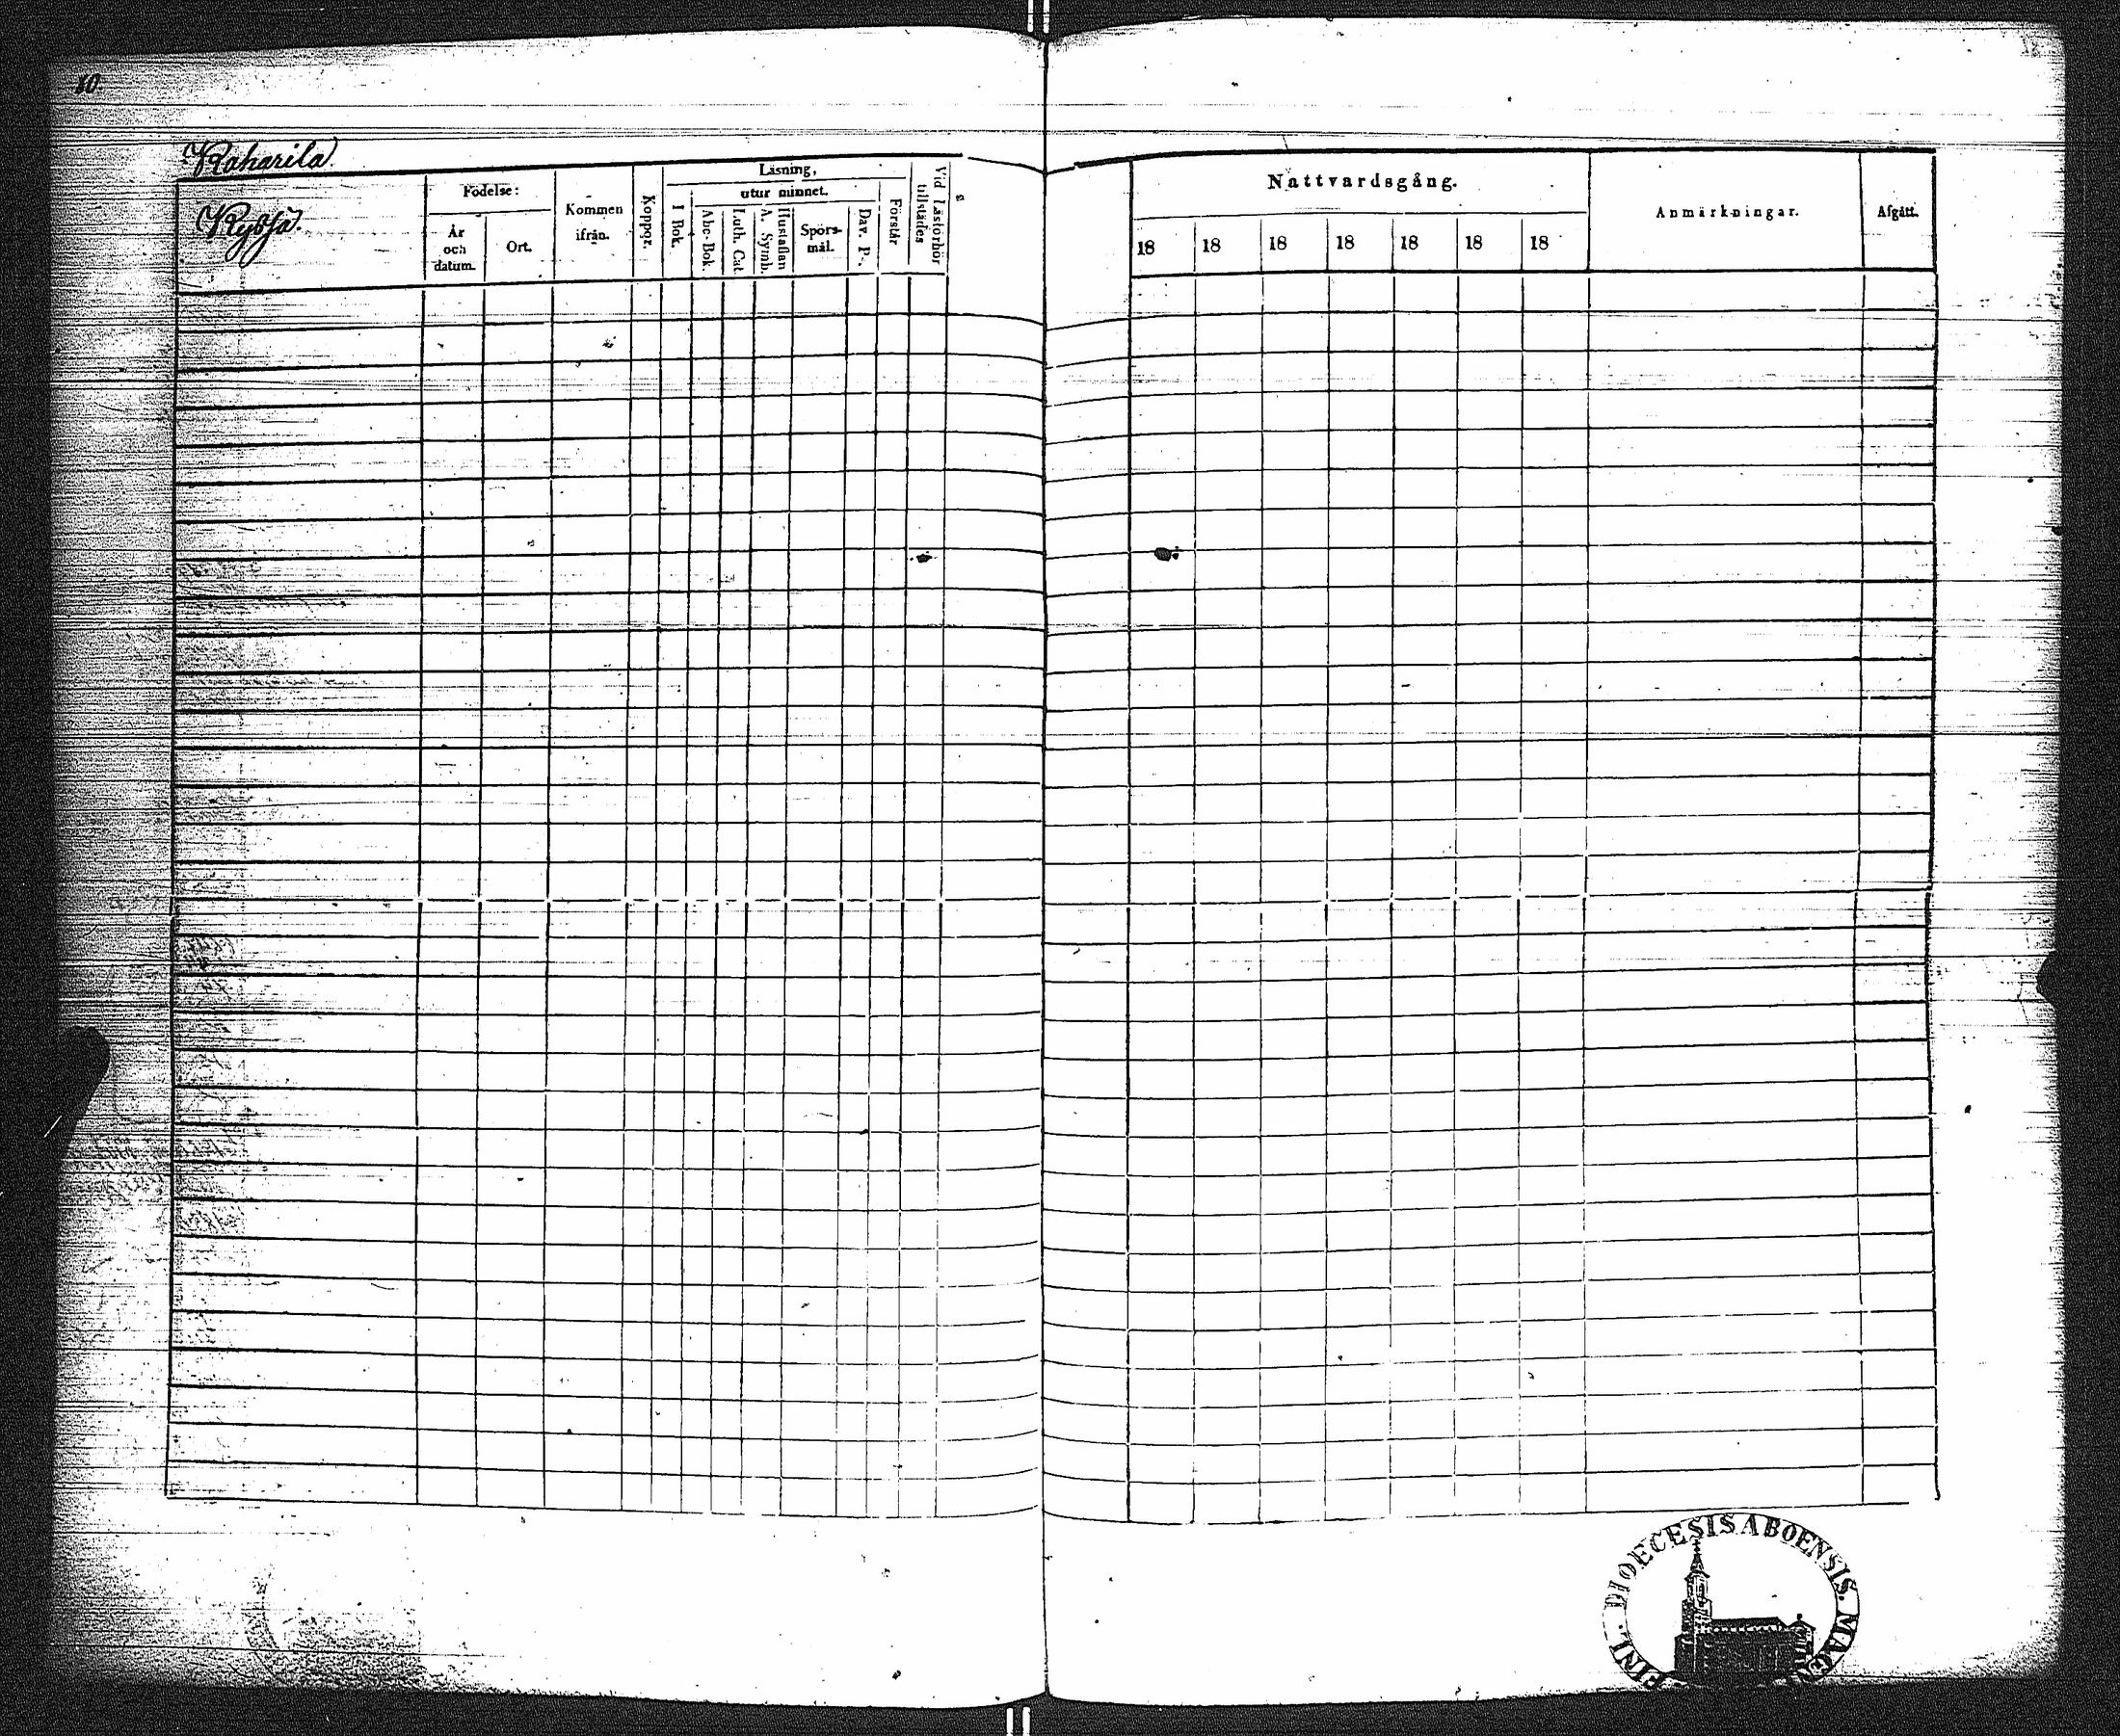 80.
Raharila.
Födelse:
År
och
datum.
Ort.
Kommen
ifrån.
Koppor.
Läsning,
utur minnet.
I Bok.
Abc-Bok.
Luth. Cat.
Hustaflan
A. Symb.
Spörs-
mål.
Dav. P.
Förstår
Vid Läsförhör
tillstädes
Nattvardsgång.
18 18 18 18 18 18 18
Anmärkningar.
Afgått.
DIOECESIS ABOENSIS. MAG
FINL.